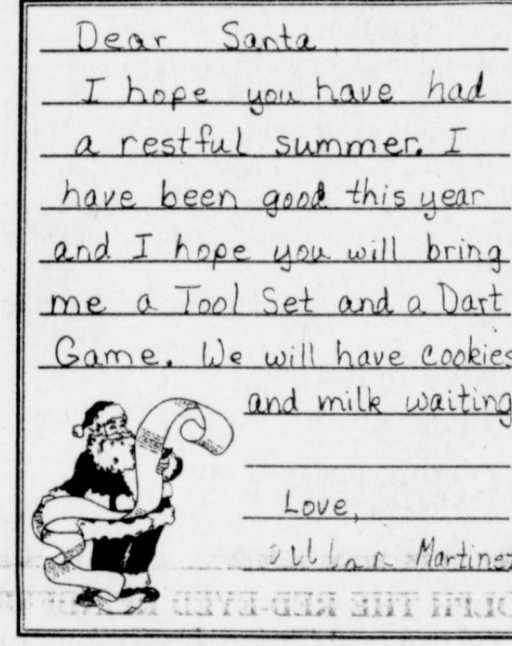 Dear Santa,
I hope you have had
a restful summer. I
have been good this year
and I hope you will bring
me a Tool Set and a Dart
Game. We will have cookies
and milk waiting
Love,
Martinez